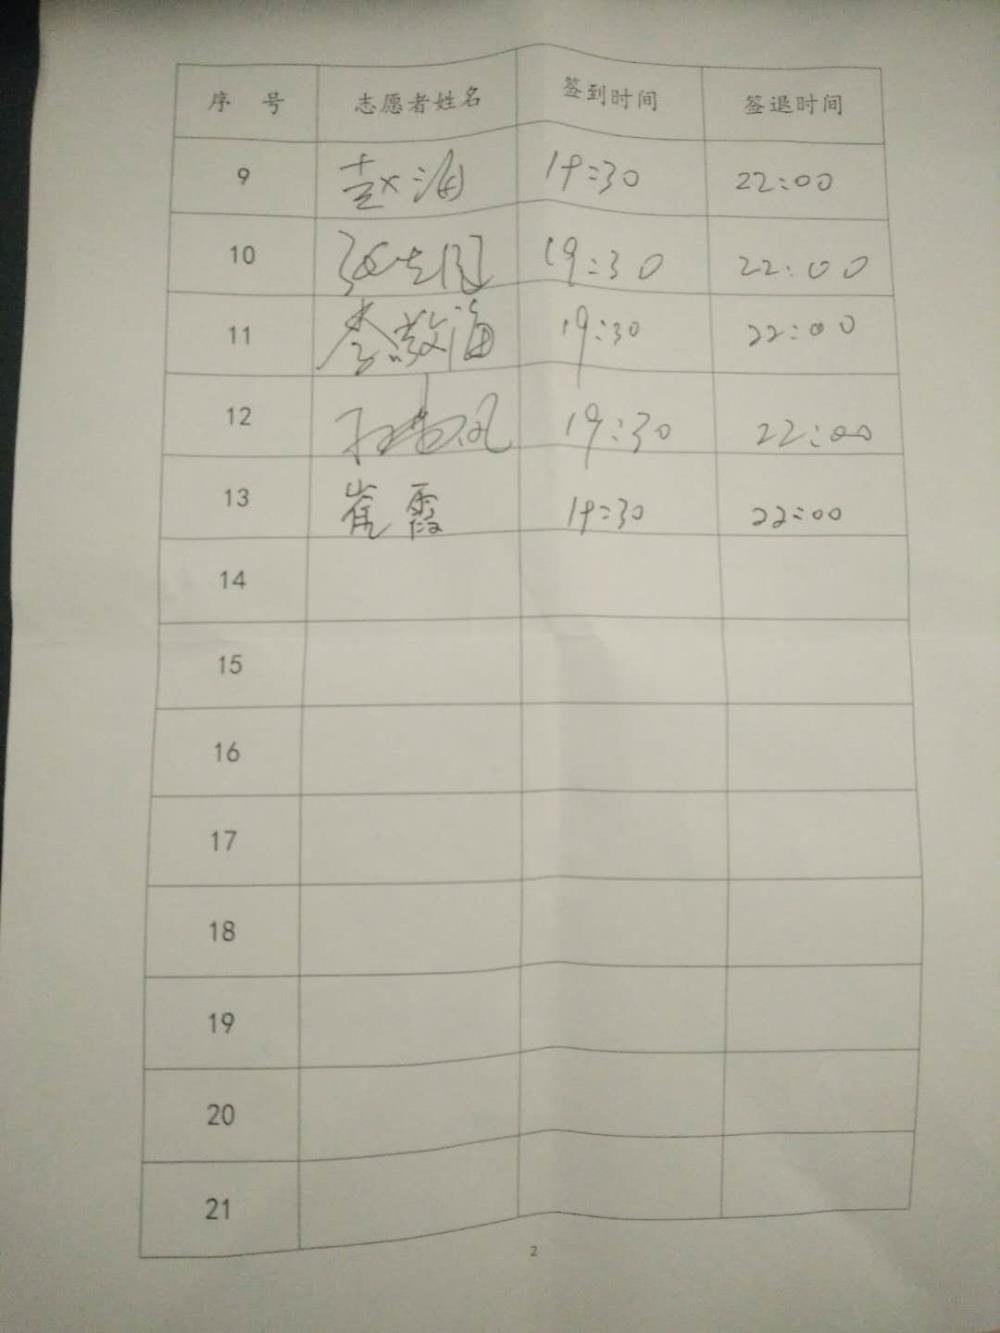 序 号 志愿者姓名 签到时间 签退时间
9 赵海 19:30 22:00
10 19:30 22:00
11 李敬海 19:30 22:00
12 19:30 22:00
13 崔霞 19:30 22:00
14
15
16
17
18
19
20
21
2